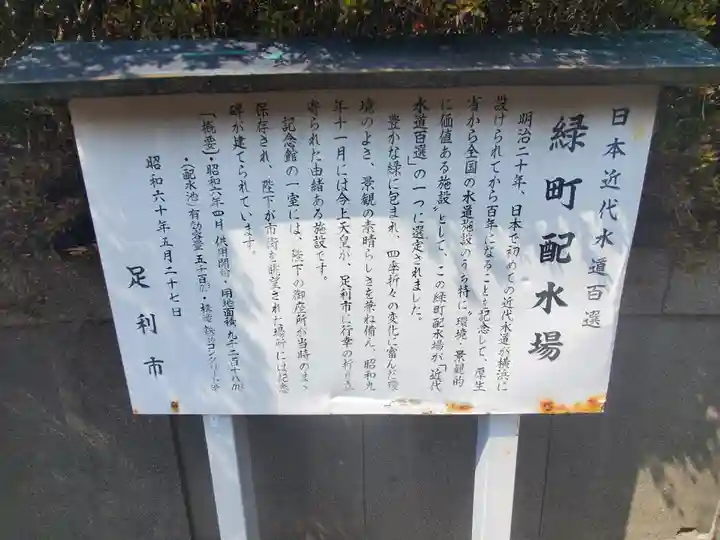 日本近代水道百選
緑町配水場
明治二十年、日本で初めての近代水道が横浜に
設けられてから百年になることを記念して、厚生
省から全国の水道施設のうち特に"環境・景観的
に価値ある施設"として、この緑町配水場が「近代
水道百選」の一つに選定されました。
豊かな緑に包まれ、四季折々の変化に富んだ環
境のよさ、景観の素晴らしさを兼ね備え、昭和九
年十一月には今上天皇が、足利市に行幸の折り立
寄られた由緒ある施設です。
記念館の一室には、陛下の御座所が当時のまゝ
保存され、陛下が市街を眺望された場所には記念
碑が建てられています。
「概要」・昭和六年四月供用開始・用地面積 九千二百十八㎡
・(配水池)有効容量 五千百㎥・構造 鉄筋コンクリート
昭和六十年五月二十七日
足利市